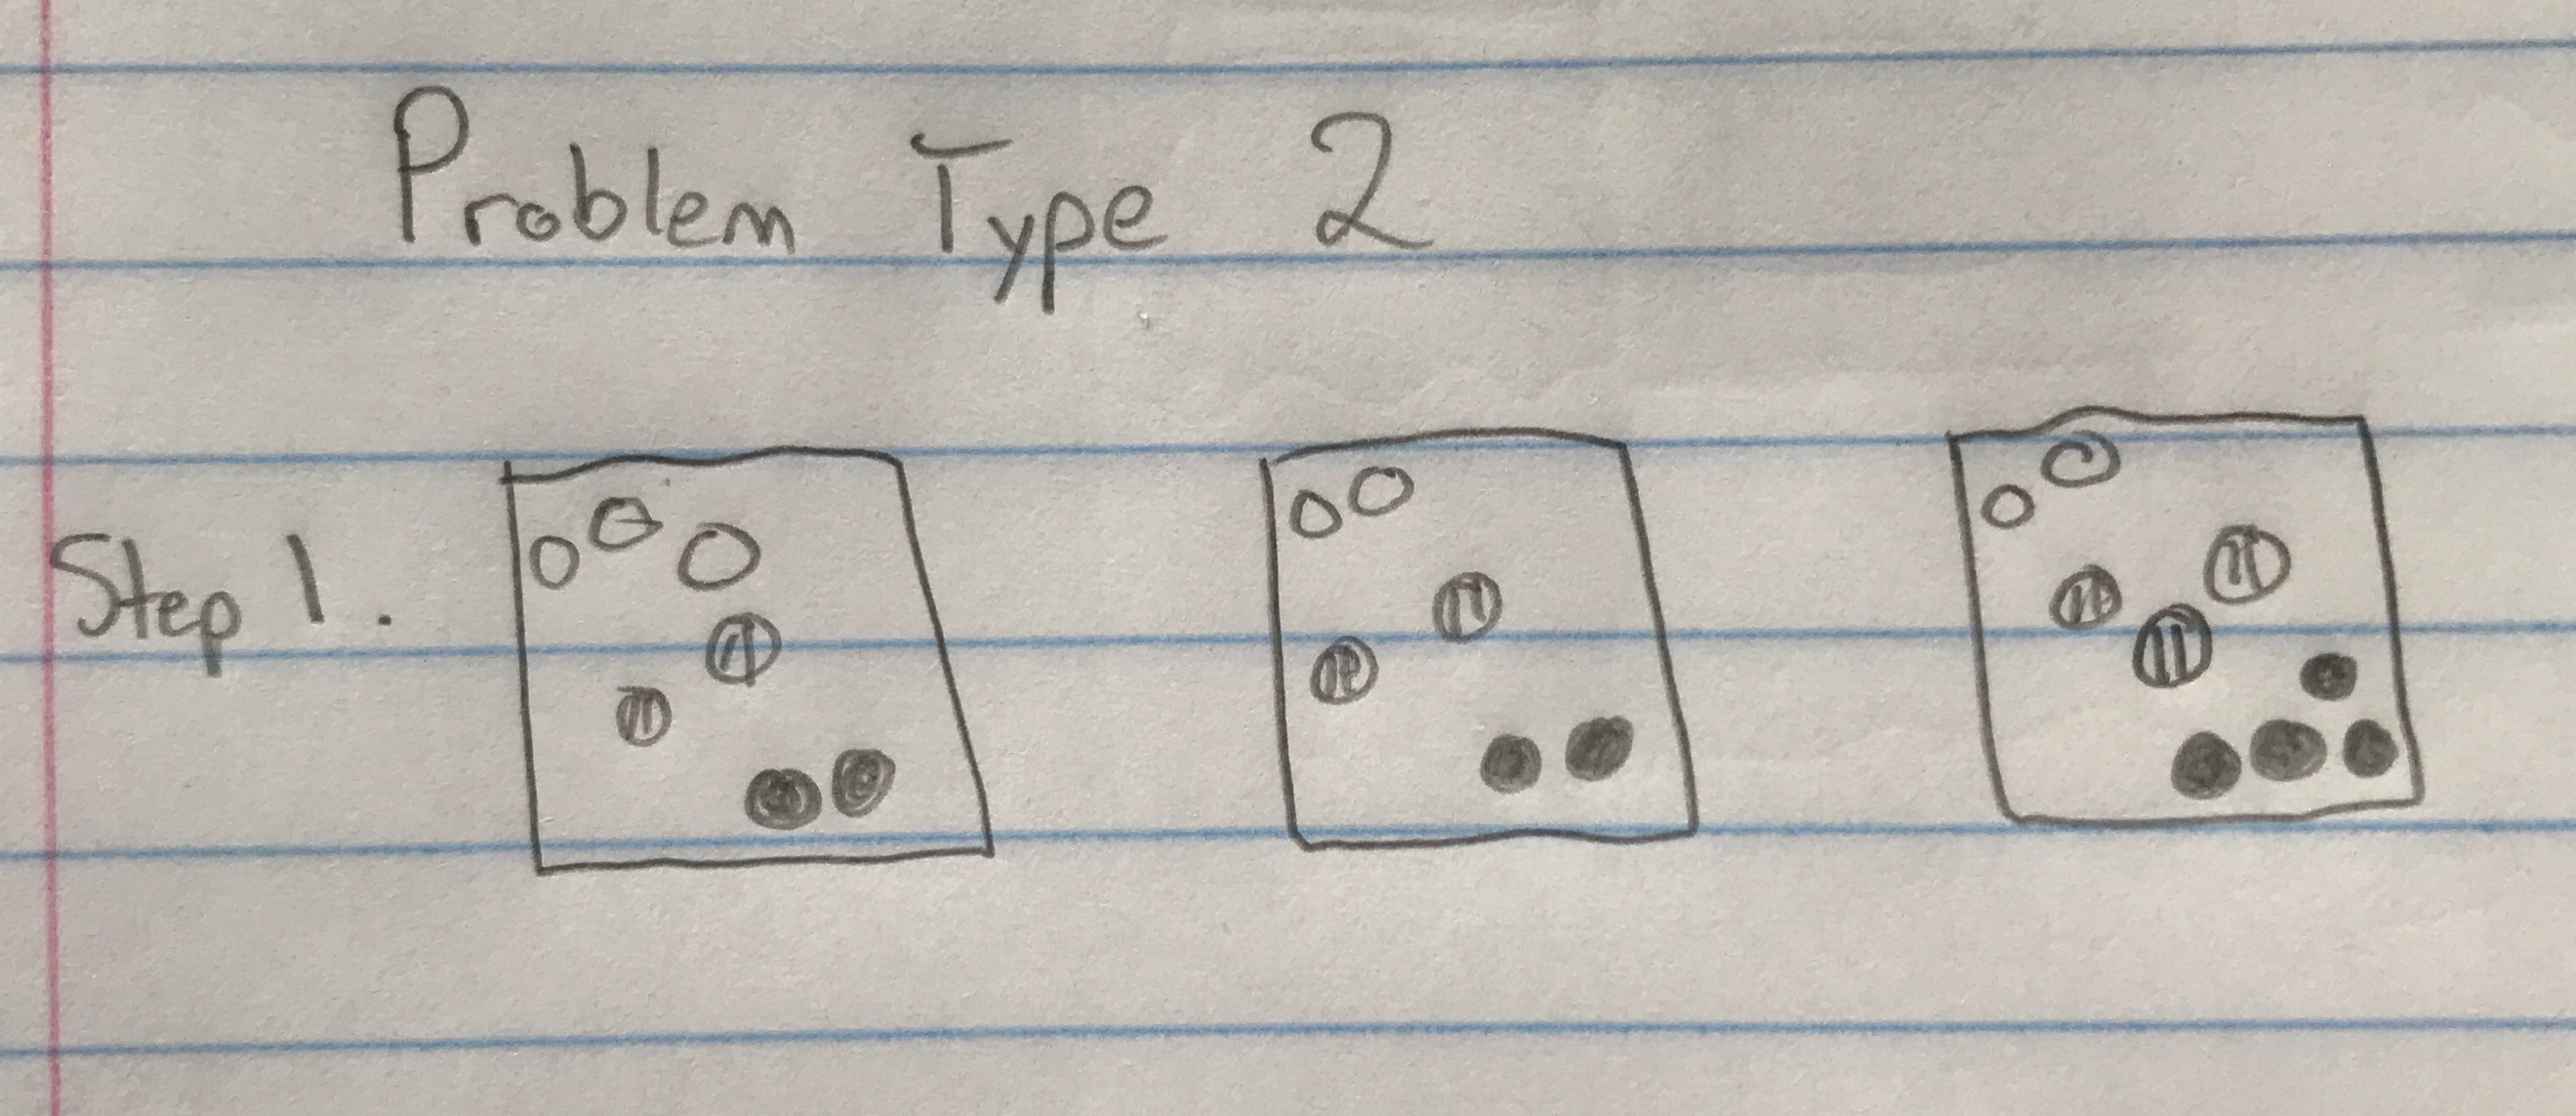 Problem Type 2
Step 1.